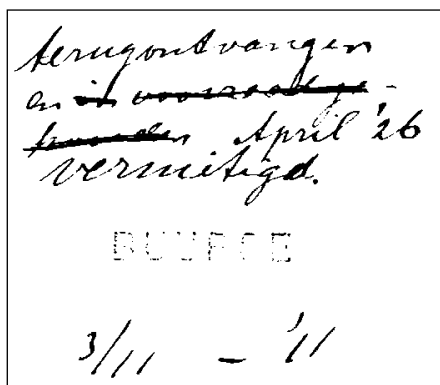 terugontvangen
en in voorraad ge-
houden April '26
vernietigd.
BUURSE
3/11 - '11